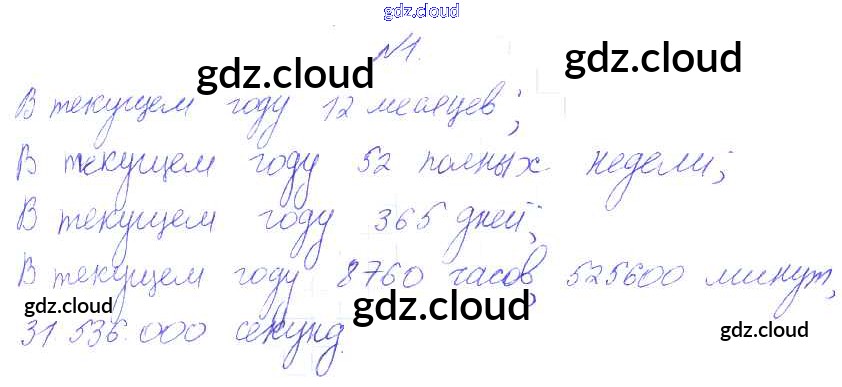 gdz.cloud
№1.
gdz.cloud gdz.cloud
В текущем году 12 месяцев;
В текущем году 52 полных недели;
В текущем году 365 дней;
В текущем году 8760 часов, 525600 минут,
gdz.cloud gdz.cloud gdz.cloud
31.536.000 секунд.
gdz.cloud